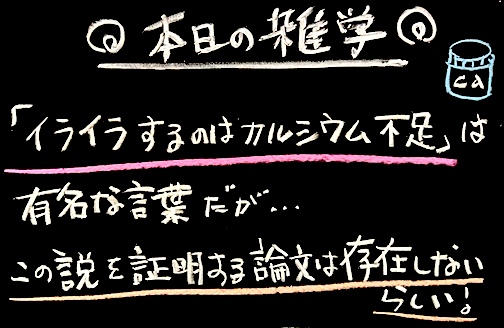 ◎ 本日の雑学 ◎
ca
「イライラするのはカルシウム不足」は
有名な言葉だが…
この説を証明する論文は存在しない
らしい!